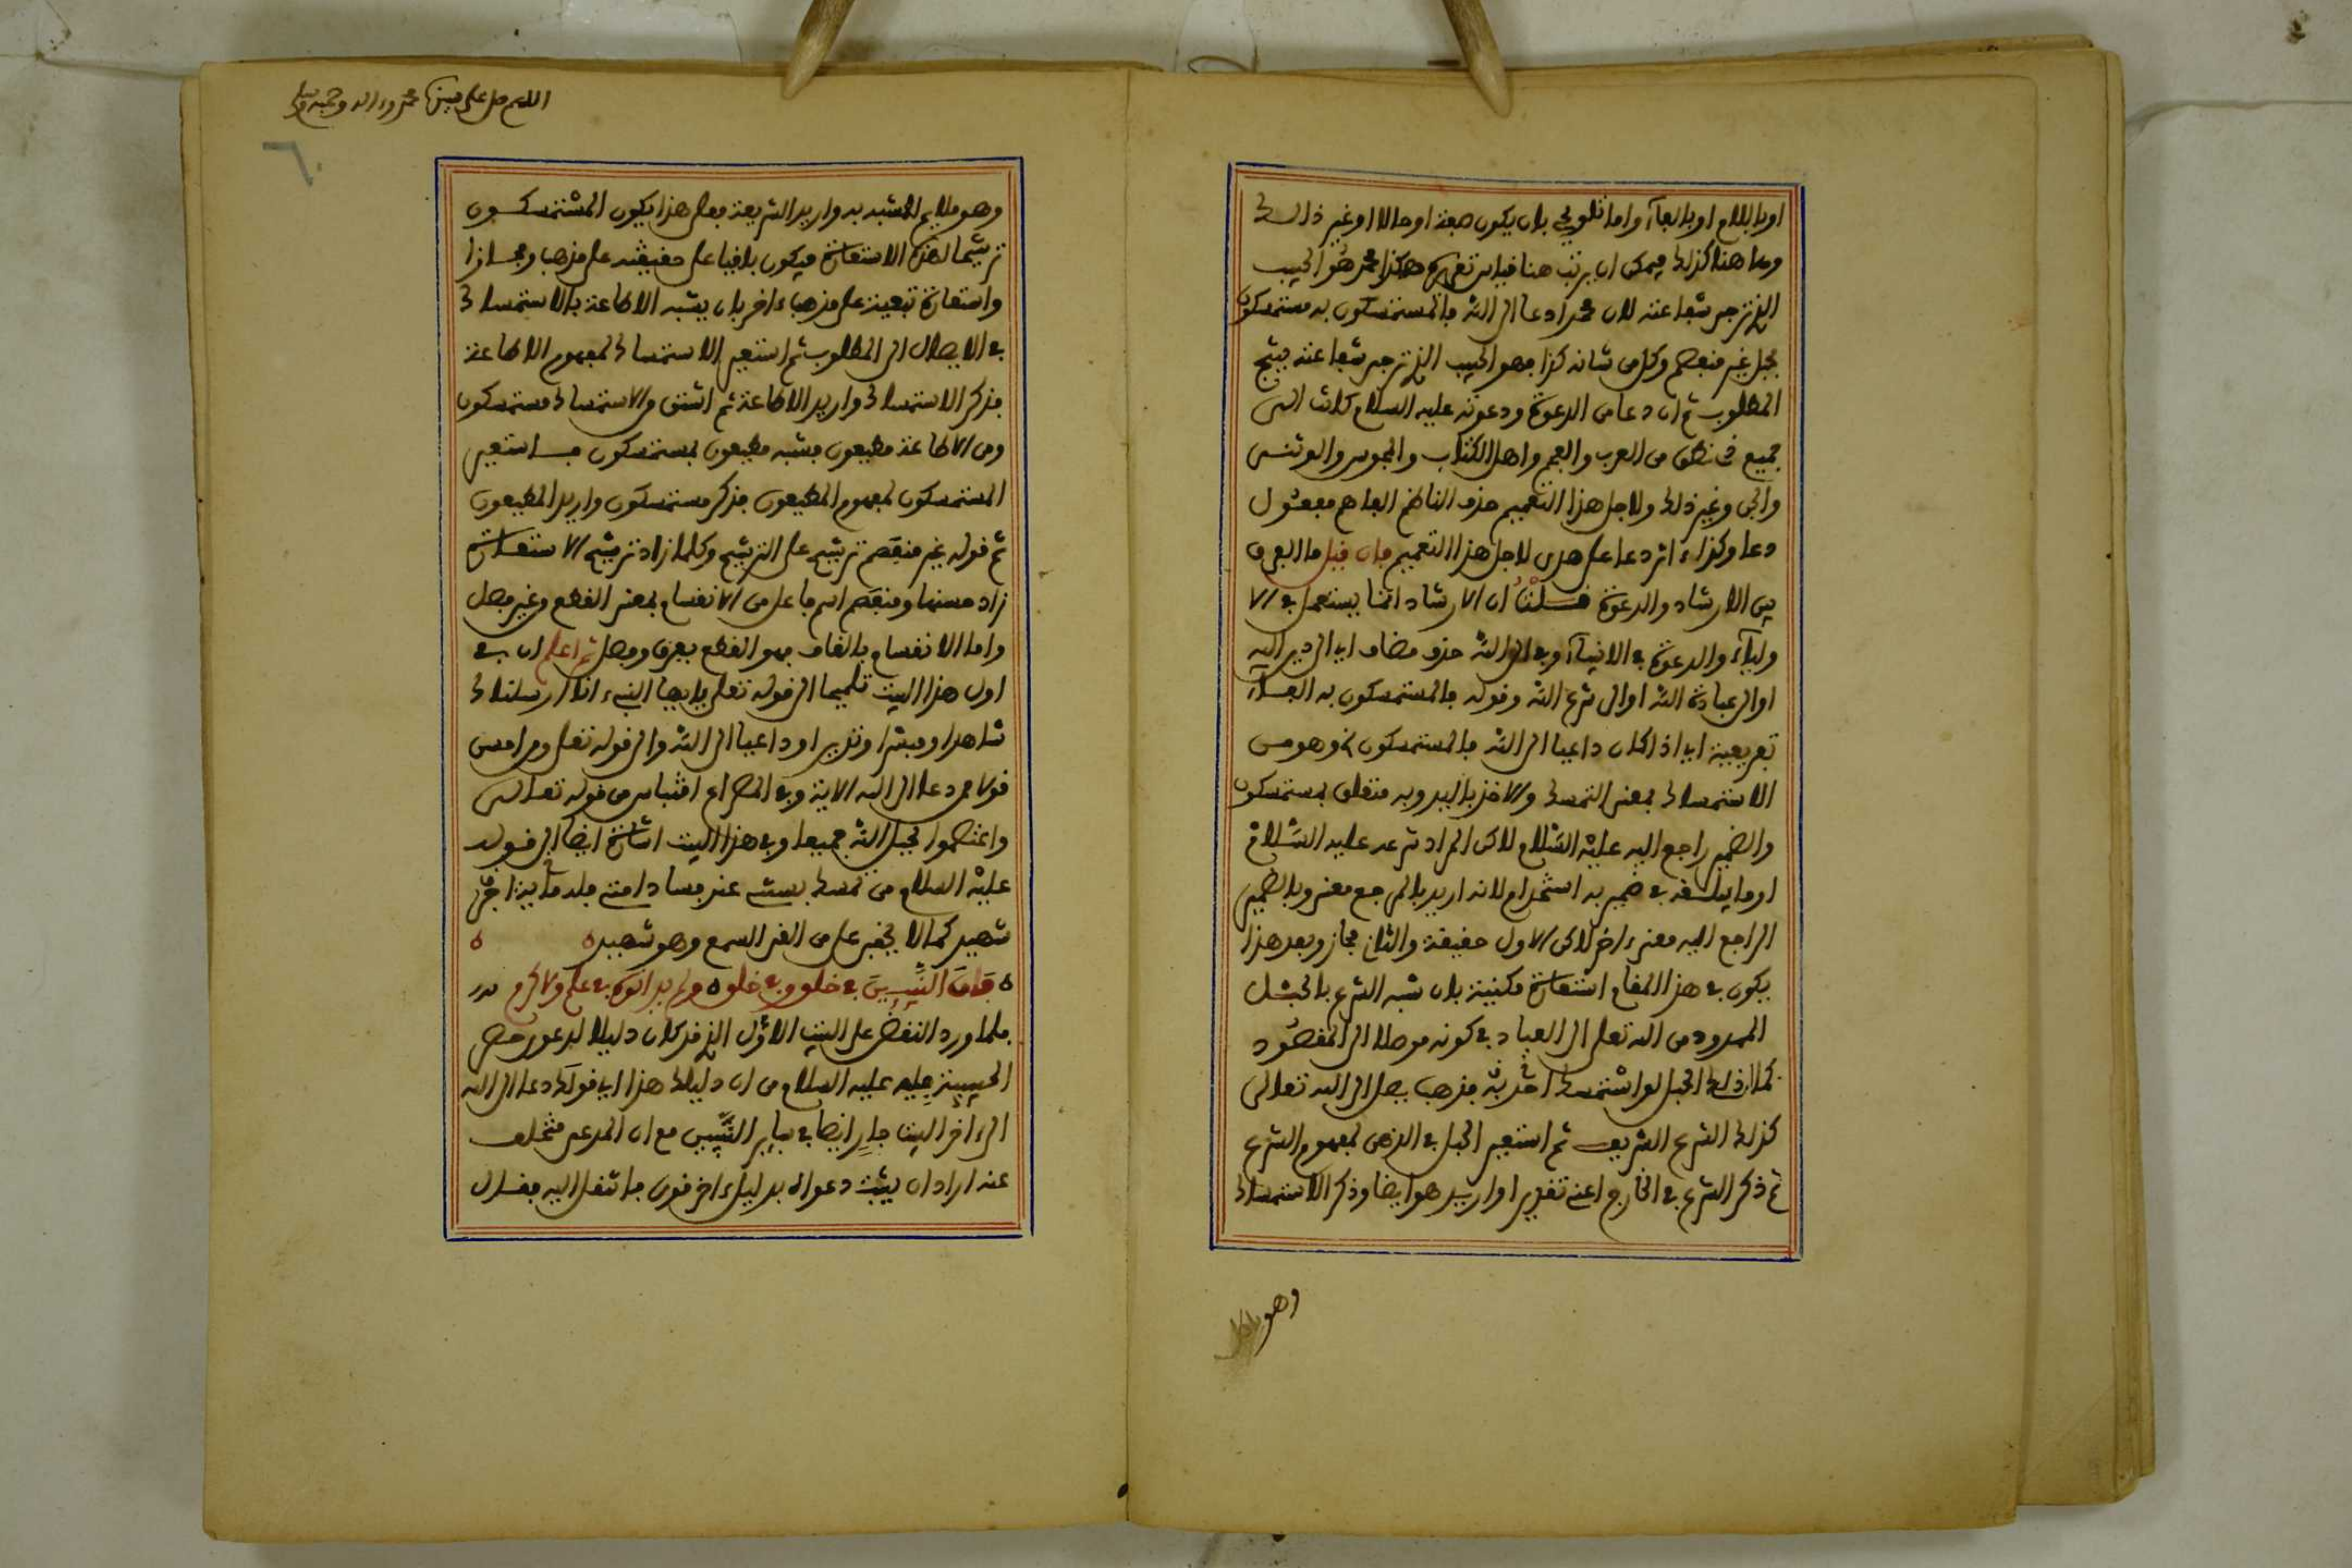 او بالللام او بالفاء واما تلويحي بان يكون صفة او حالا او غير ذالك
وما هنا كذلك فيمكن ان يرتب هنا قياس تقريره هكذا محمد هو الحبيب
الذي ترجى شفاعته لان محمدا دعا الى الله فالمستمسكون به مستمسكون
بحبل غير منفصم وكل من شانه كذا فهو الحبيب الذي ترجى شفاعته ينتج
المطلوب ثم ان دعا من الدعوة ودعوته عليه السلام كانت الى
جميع من العرب والعجم واهل الكتاب والمجوس والوثنى
والجن وغير ذلك ولاجل هذا التعميم حذف الناظم الفاهم مفعول
دعا وكذا ءاثر دعا على هدى لاجل هذا التعميم فان قيل ما الفرق
بين الارشاد والدعوة قلت ان الارشاد انما يستعمل في الا
ولياء والدعوة في الانبياء وفي الى الله حذف مضاف اي الى دين الله
او الى عبادة الله او الى شرع الله وقوله فالمستمسكون به الفاء
تفريعية اي اذا كان داعيا الى الله فالمستمسكون الخ وهو من
الاستمساك بمعنى التمسك والاخذ باليد وبه متعلق بمستمسكون
والضمير راجع اليه عليه السلام لاكن المراد شرعه عليه السلام
او ما في ضمير به استخدام لانه اريد بالمرجع معنى وبالضمير
الراجع اليه معنى ءاخر لاكن الاول حقيقة والثاني مجاز وبعد هذا
يكون في هذا المقام استعارة مكنية بان شبه الشرع بالحبل
الممدود من الله تعلى الى العباد في كونه موصلا الى المقصود
كما ان ذلك الحبل لو استمسك احد به فذهب يصل الى الله تعالى
كذلك الشرع الشريف ثم استعير الحبل في الذهن لمفهوم الشرع
ثم ذكر الشرع في الخارج اعنى تقديرا واريد هو ايضا وذكر الاستمساك
وهو
اللهم صل على سيدنا محمد وءاله وصحبه وسلم
٦٠
وهو ملايم للمشبه به واريد الشريعة فعلى هذا يكون المستمسكون
ترشيحا لهذه الاستعارة فيكون باقيا على حقيقته على مذهب ومجازا
واستعارة تبعية على مذهب ءاخر بان يشبه الاطاعة بالاستمساك
في الايصال الى المطلوب ثم استعير الاستمساك لمفهوم الاطاعة
فذكر الاستمساك واريد الاطاعة ثم اشتق من الاستمساك مستمسكون
ومن الاطاعة مطيعون فشبه مطيعون بمستمسكون فاستعير
المستمسكون لمفهوم المطيعون فذكر مستمسكون واريد المطيعون
ثم قوله غير منفصم ترشيح على الترشيح وكلما زاد ترشيح الاستعارة
زاد حسنها ومنفصم اسم فاعل من الانفصام بمعنى القطع وغير فصل
واما الانقصام بالقاف فهو القطع بفرق وفصل ثم اعلم ان في
اول هذا البيت تلميحا الى قوله تعلى يايها النبيء انا ارسلناك
شاهدا ومبشرا ونذيرا وداعيا الى الله والى قوله تعلى ومن احسن
قولا ممن دعا الى الله الاية وفي المصراع اقتباس من قوله تعالى
واعتصموا بحبل الله جميعا وفي هذا البيت اشارة ايضا الى قوله
عليه السلام من تمسك بسنتى عند فساد امتى فله ماية اجر
شهيد كما لا يخفى على من القى السمع وهو شهيد
فاق النبيين في خلق وفي خلق ولم يدانوه في علم ولا كرم
فلما ورد النقض على البيت الاول الذي قد كان دليلا لدعوى حصر
الحبيبية عليه السلام من ان دليلك هذا اي قولك دعا الى الله
الى ءاخر البيت جار ايضا في ساير النبيين مع ان المدعى متخلف
عنه اراد ان يثبت دعواه بدليل ءاخر قوى فانتقل اليه فقال